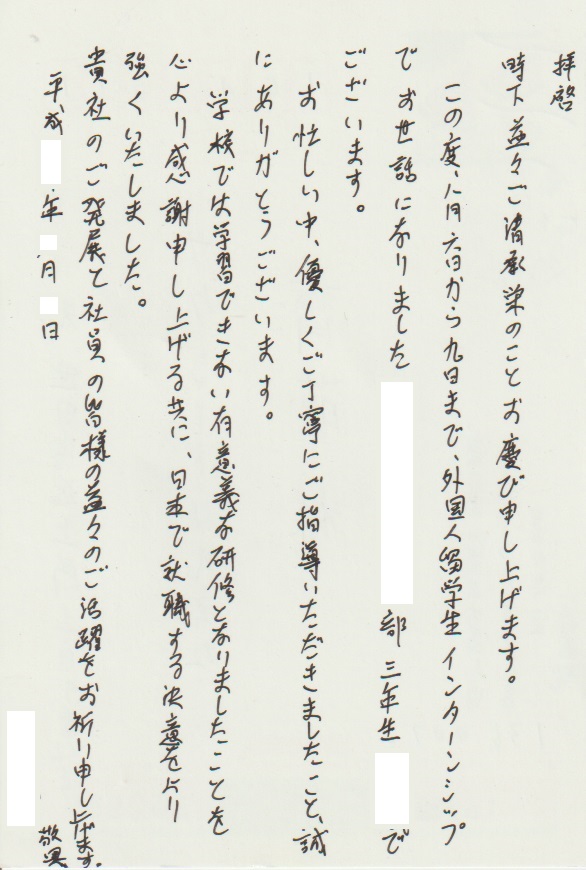 拝啓
時下益々ご清承栄のことお慶び申し上げます。
この度、八月六日から九日まで、外国人留学生インターンシップ
でお世話になりました 部三年生 で
ございます。
お忙しい中、優しくご丁寧にご指導いただきましたこと、誠
にありがとうございます。
学校では学習できない有意義な研修となりましたことを
心より感謝申し上げる共に、日本で就職する決意をより
強くいたしました。
貴社のご発展と社員の皆様の益々のご活躍をお祈り申し上げます。
敬具
平成 年 月 日